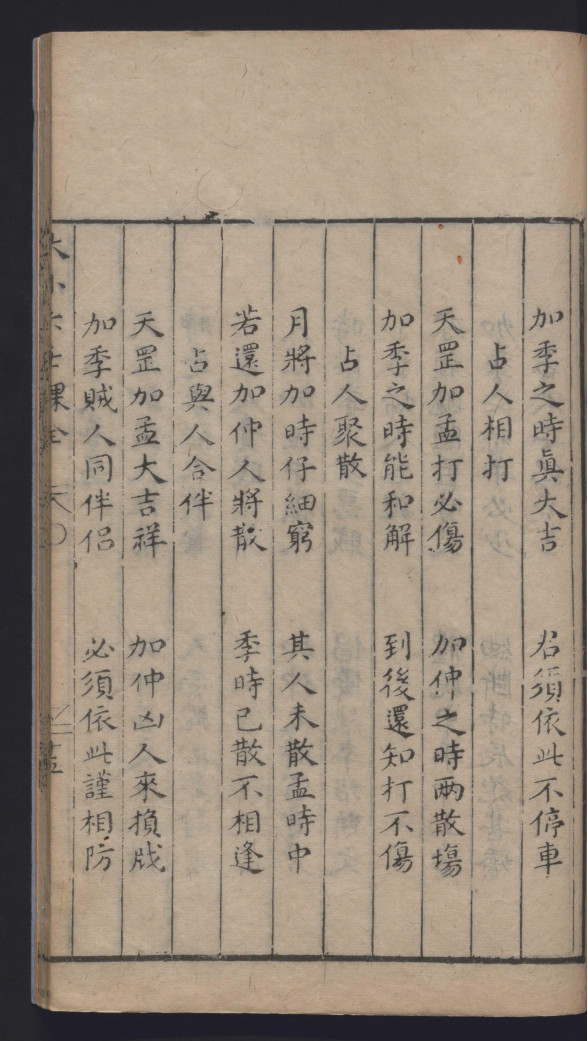 加季之時眞大吉　君須依此不停車
占人相打
天罡加孟打必傷　加仲之時兩散塲
加季之時能和解　到後還知打不傷
占人聚散
月將加時仔細窮　其人未散孟時中
若還加仲人將散　季時已散不相逢
占與人合伴
天罡加孟大吉祥　加仲凶人來損戕
加季賊人同伴侣　必須依此謹相防
大小六壬課全